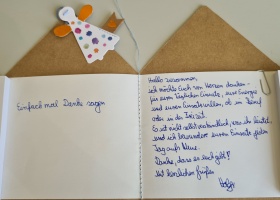 Einfach mal Danke sagen
Hallo zusammen,
ich möchte Euch von Herzen danken -
für euren täglichen Einsatz, eure Energie
und euren Einsatzwillen, ob im Beruf
oder in der Freizeit.
Es ist nicht selbstverständlich, was ihr leistet
und ich bewundere euren Einsatz jeden
Tag aufs Neue.
Danke, dass es euch gibt!
Mit herzlichen Grüßen